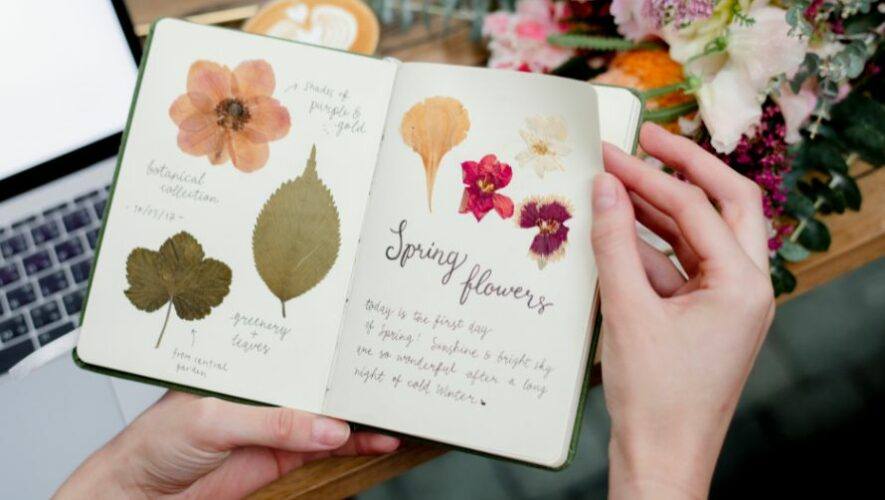 shades of
purple &
gold
botanical
collection
- 10/03/17 -
greenery
+
leaves
from central
garden
Spring
flowers
today is the first day
of Spring! Sunshine & bright sky
are so wonderful after a long
night of cold Winter